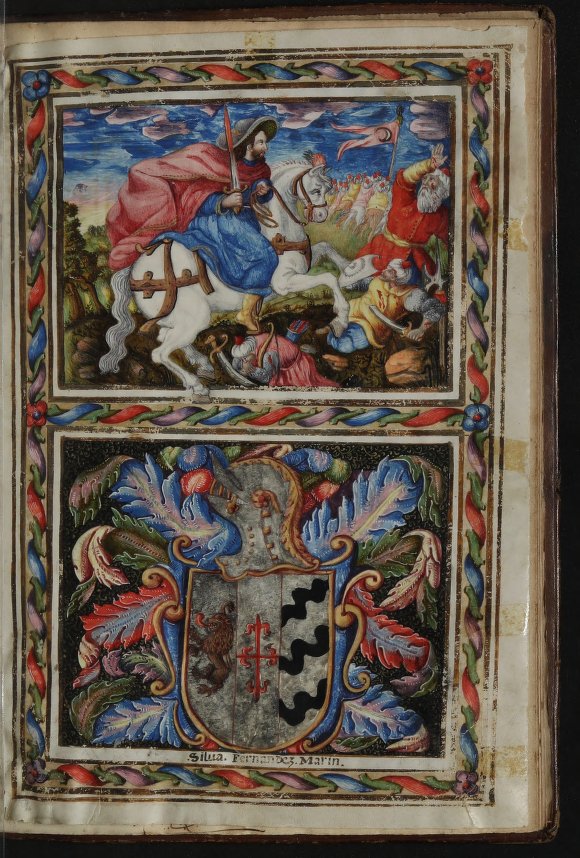 Silua. Fernandez. Marin.